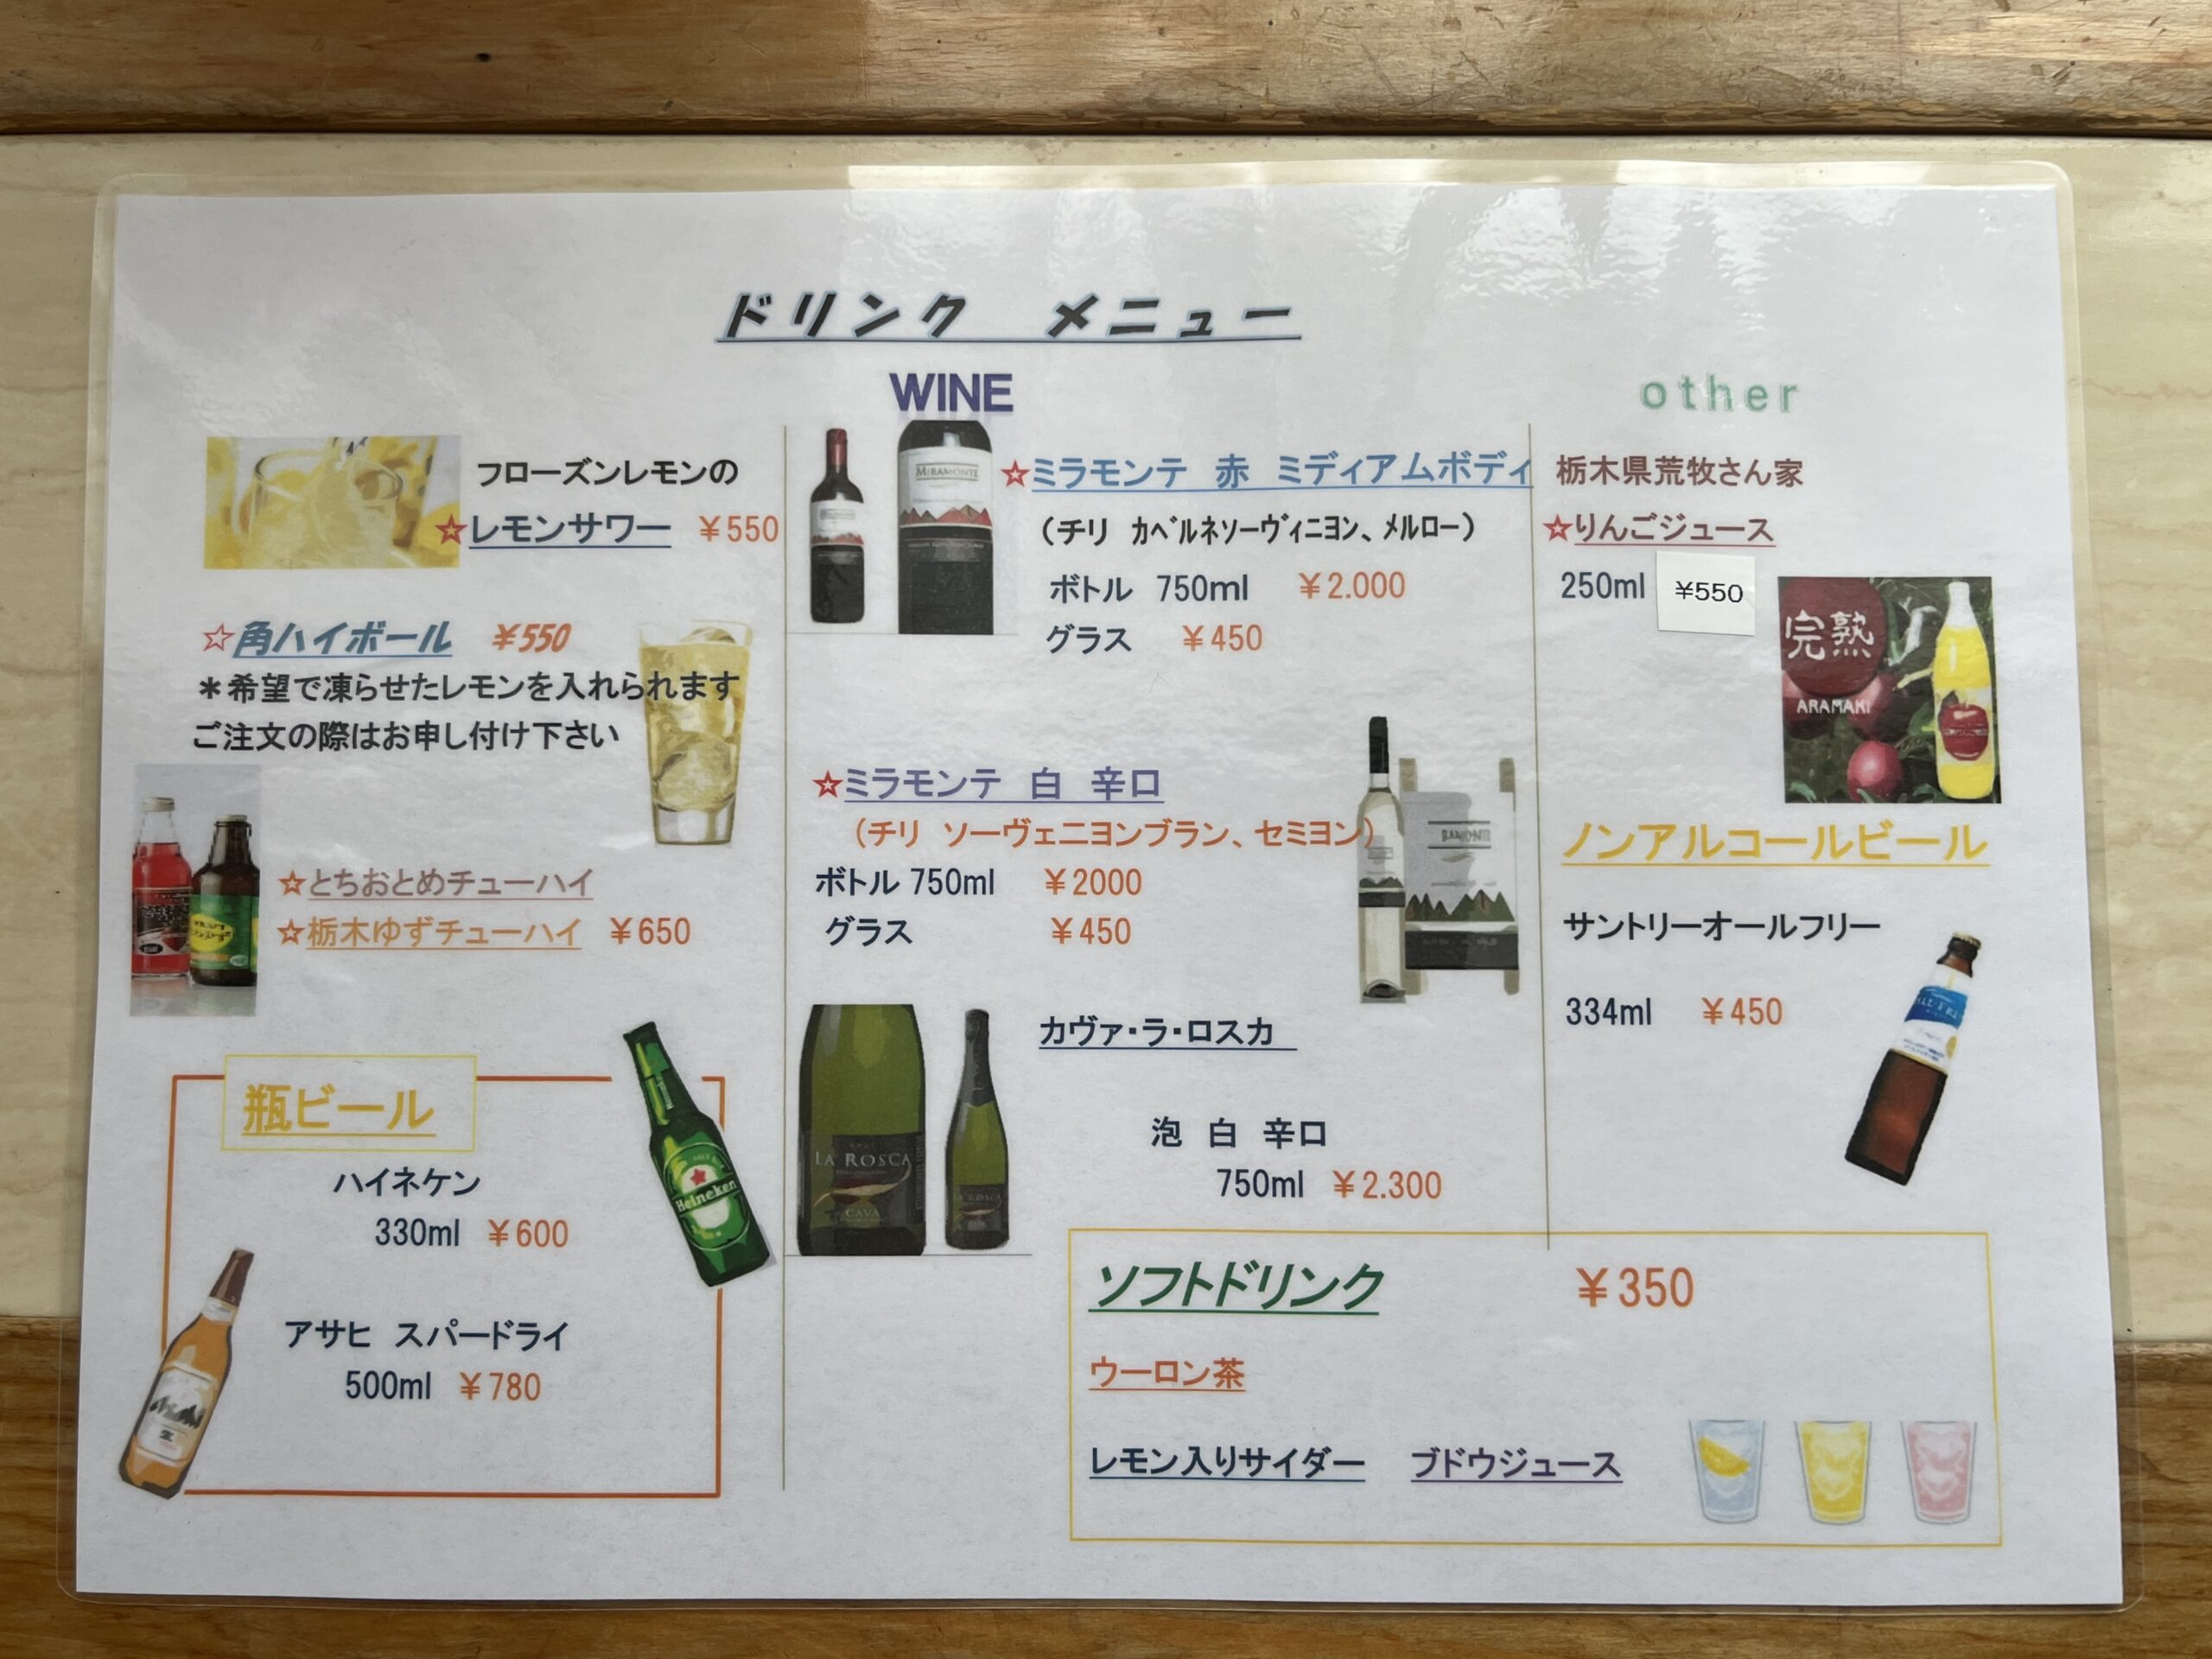 ドリンク　メニュー
フローズンレモンの
☆レモンサワー　￥550
☆角ハイボール　￥550
＊希望で凍らせたレモンを入れられます
ご注文の際はお申し付け下さい
☆とちおとめチューハイ
☆栃木ゆずチューハイ　￥650
瓶ビール
ハイネケン
330ml　￥600
Heineken
アサヒ　スパードライ
500ml　￥780
WINE
MIRAMONTE
☆ミラモンテ　赤　ミディアムボディ
（チリ　ｶﾍﾞﾙﾈｿｰｳﾞｨﾆﾖﾝ、ﾒﾙﾛｰ）
ボトル　750ml　￥2.000
グラス　￥450
☆ミラモンテ　白　辛口
（チリ　ソーヴェニヨンブラン、セミヨン）
ボトル 750ml　￥2000
グラス　￥450
カヴァ・ラ・ロスカ
LA ROSCA
CAVA
泡　白　辛口
750ml　￥2.300
other
栃木県荒牧さん家
☆りんごジュース
250ml ¥550
完熟
ARAMAKI
ノンアルコールビール
サントリーオールフリー
334ml　￥450
ソフトドリンク　￥350
ウーロン茶
レモン入りサイダー　ブドウジュース